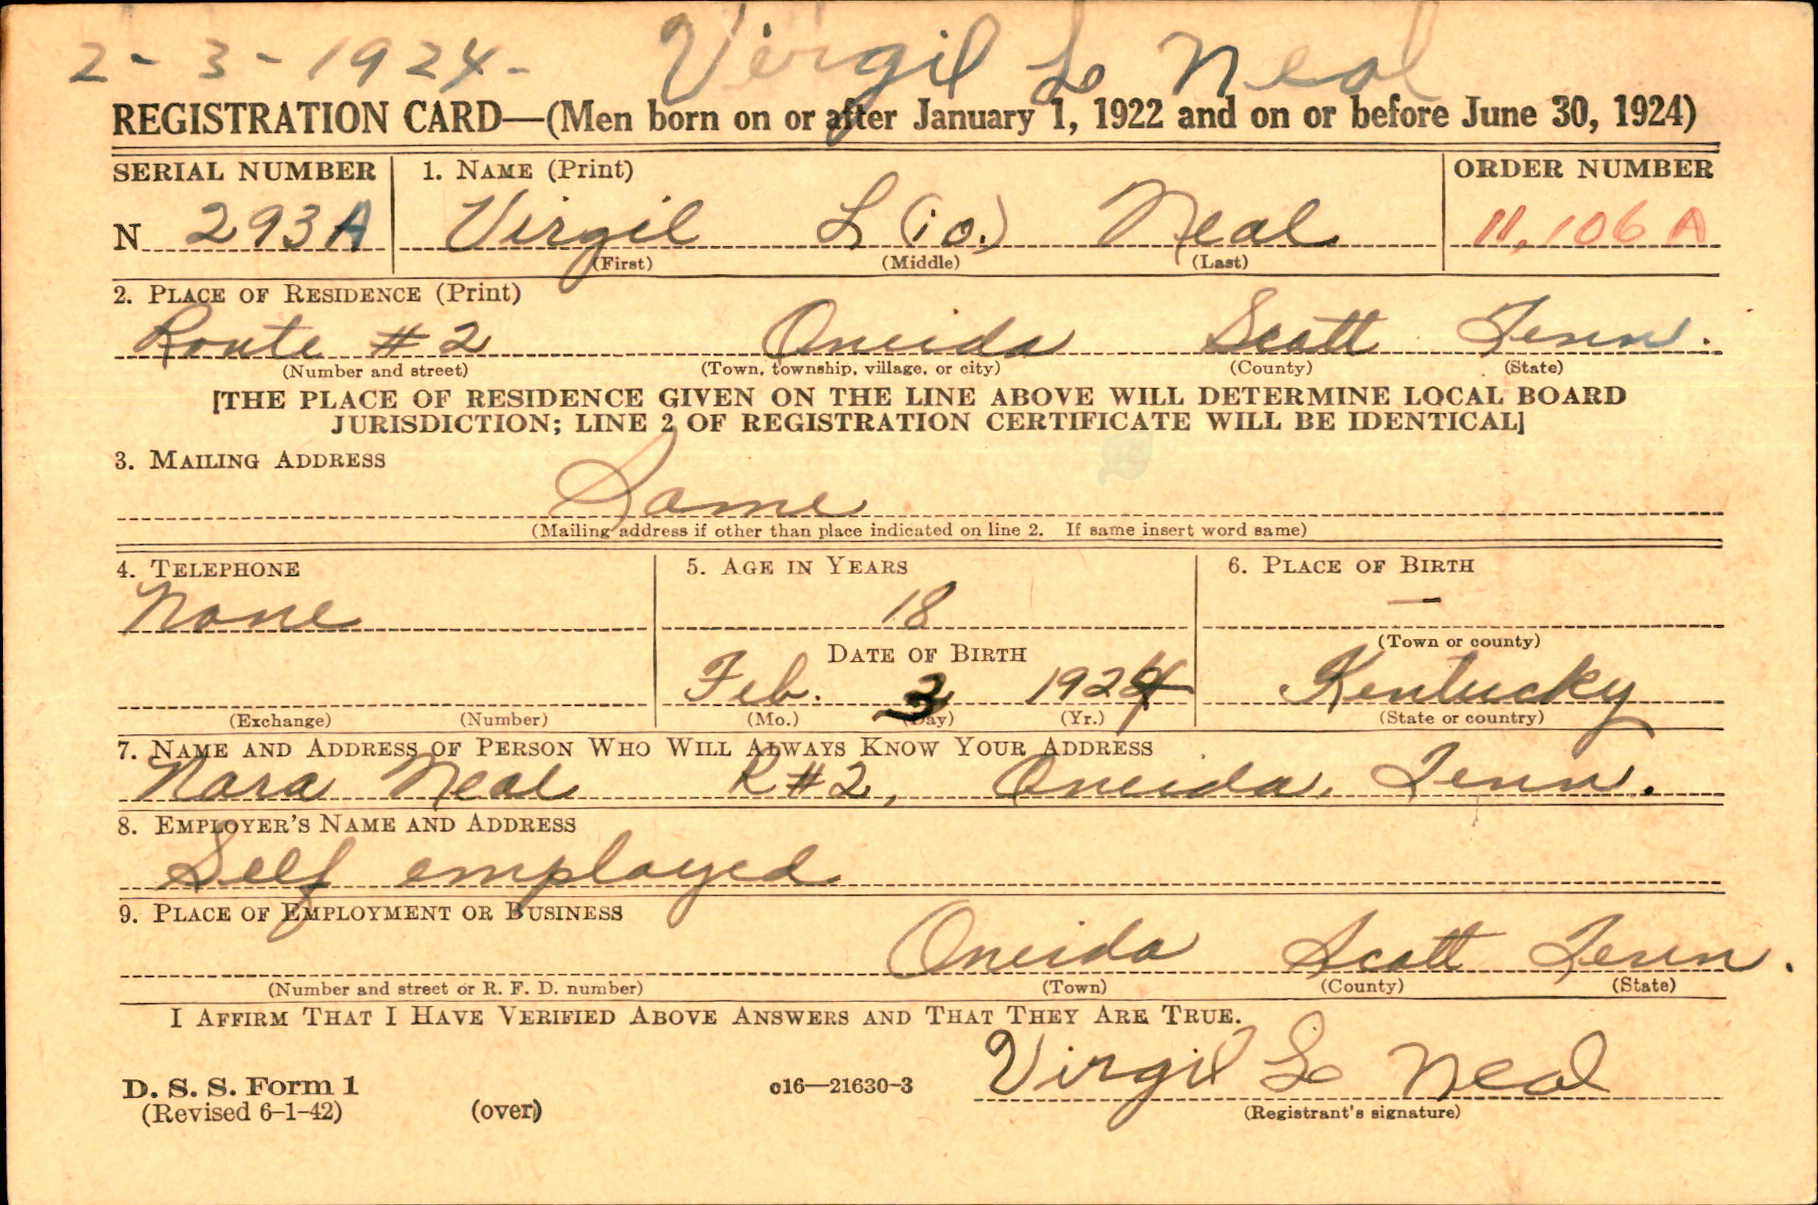 2-3-1924- Virgil L Neal
REGISTRATION CARD—(Men born on or after January 1, 1922 and on or before June 30, 1924)
SERIAL NUMBER 1. NAME (Print) ORDER NUMBER
N 293A Virgil L (io.) Neal 11,106 A
(First) (Middle) (Last)
2. PLACE OF RESIDENCE (Print)
Route #2 Oneida Scott Tenn.
(Number and street) (Town, township, village, or city) (County) (State)
[THE PLACE OF RESIDENCE GIVEN ON THE LINE ABOVE WILL DETERMINE LOCAL BOARD
JURISDICTION; LINE 2 OF REGISTRATION CERTIFICATE WILL BE IDENTICAL]
3. MAILING ADDRESS
Same
(Mailing address if other than place indicated on line 2. If same insert word same)
4. TELEPHONE 5. AGE IN YEARS 6. PLACE OF BIRTH
None 18 —
(Town or county)
DATE OF BIRTH
Feb. 3 1924 Kentucky
(Exchange) (Number) (Mo.) (Day) (Yr.) (State or country)
7. NAME AND ADDRESS OF PERSON WHO WILL ALWAYS KNOW YOUR ADDRESS
Nara Neal R#2, Oneida, Tenn.
8. EMPLOYER'S NAME AND ADDRESS
Self employed
9. PLACE OF EMPLOYMENT OR BUSINESS
Oneida Scott Tenn.
(Number and street or R. F. D. number) (Town) (County) (State)
I AFFIRM THAT I HAVE VERIFIED ABOVE ANSWERS AND THAT THEY ARE TRUE.
Virgil L Neal
D. S. S. Form 1 c16—21630-3
(Revised 6-1-42) (over) (Registrant's signature)